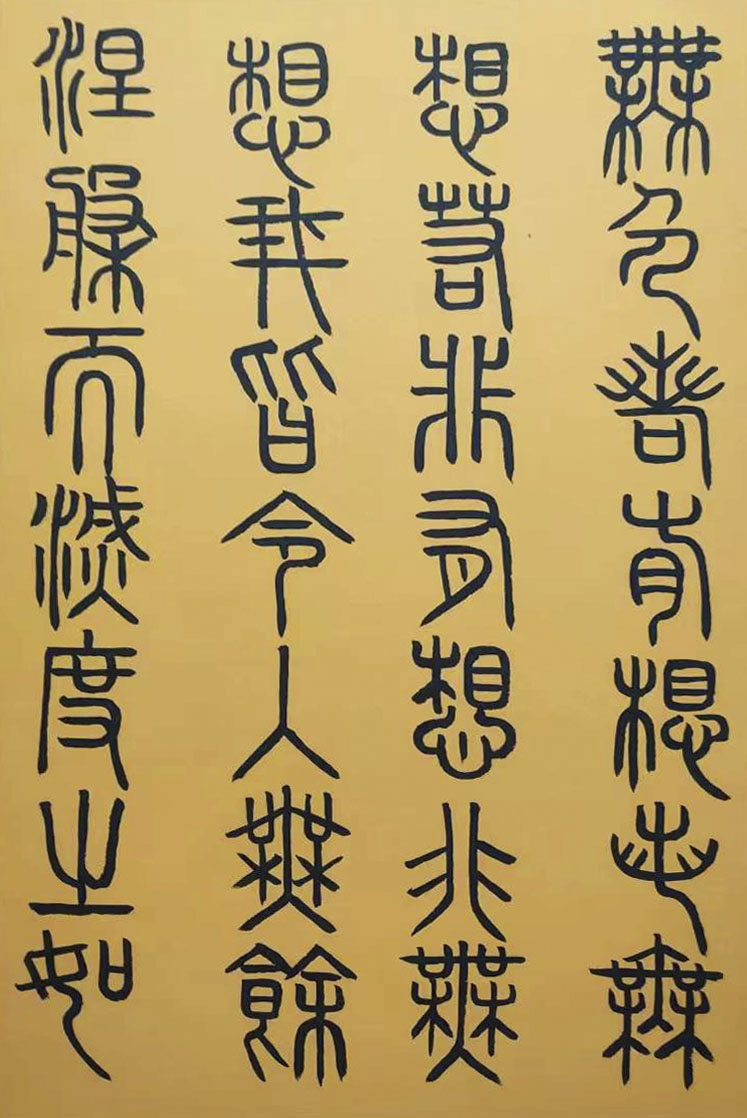 無色若有想若無
想若非有想非無
想我皆令入無餘
涅槃而滅度之如